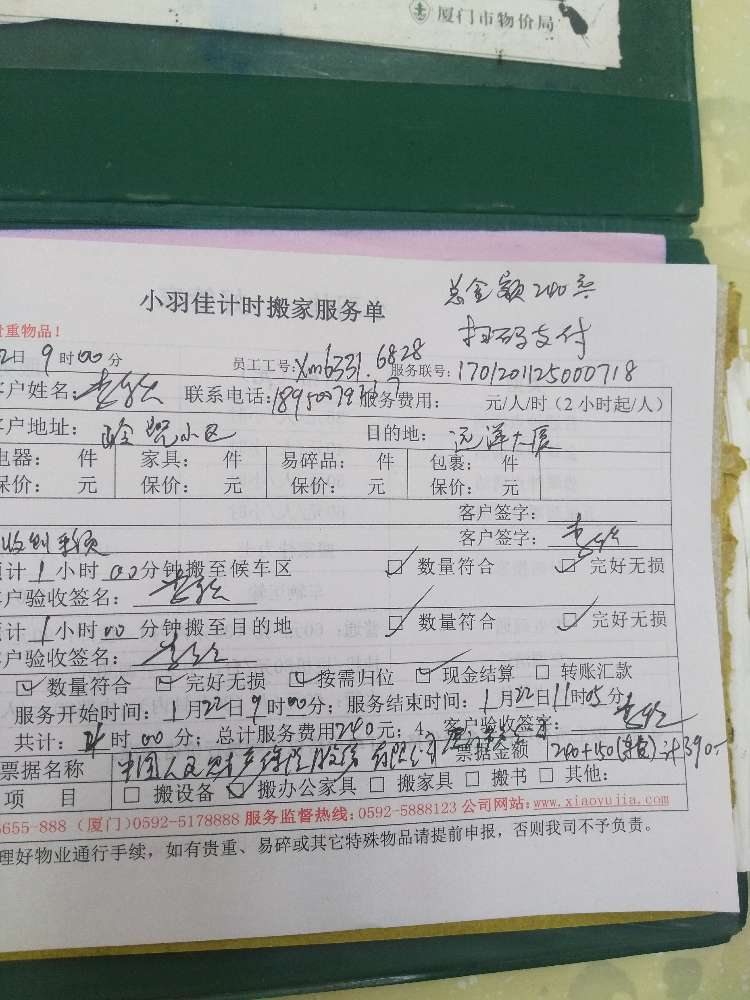 厦门市物价局
小羽佳计时搬家服务单
总金额240元
扫码支付
贵重物品!
2日9时00分 员工工号:Xm6331.6828 服务联号:1701201125000718
客户姓名: 联系电话: 服务费用: 元/人/时(2小时起/人)
客户地址: 小区 目的地:远洋大厦
电器: 件 家具: 件 易碎品: 件 包裹: 件
保价: 元 保价: 元 保价: 元 保价: 元
客户签字:
客户签字:
预计1小时00分钟搬至候车区 数量符合 完好无损
客户验收签名:
预计1小时00分钟搬至目的地 数量符合 完好无损
客户验收签名:
数量符合 完好无损 按需归位 现金结算 转账汇款
服务开始时间:1月22日9时00分;服务结束时间:1月22日11时05分
共计:时00分;总计服务费用240元;4、客户验收签字:
票据名称 中国人民财产保险股份有限公司厦门 票据金额 240+150(车费)计390
项 目 搬设备 搬办公家具 搬家具 搬书 其他:
5655-888(厦门)0592-5178888 服务监督热线:0592-5888123 公司网站:www.xiaoyujia.com
理好物业通行手续,如有贵重、易碎或其它特殊物品请提前申报,否则我司不予负责。